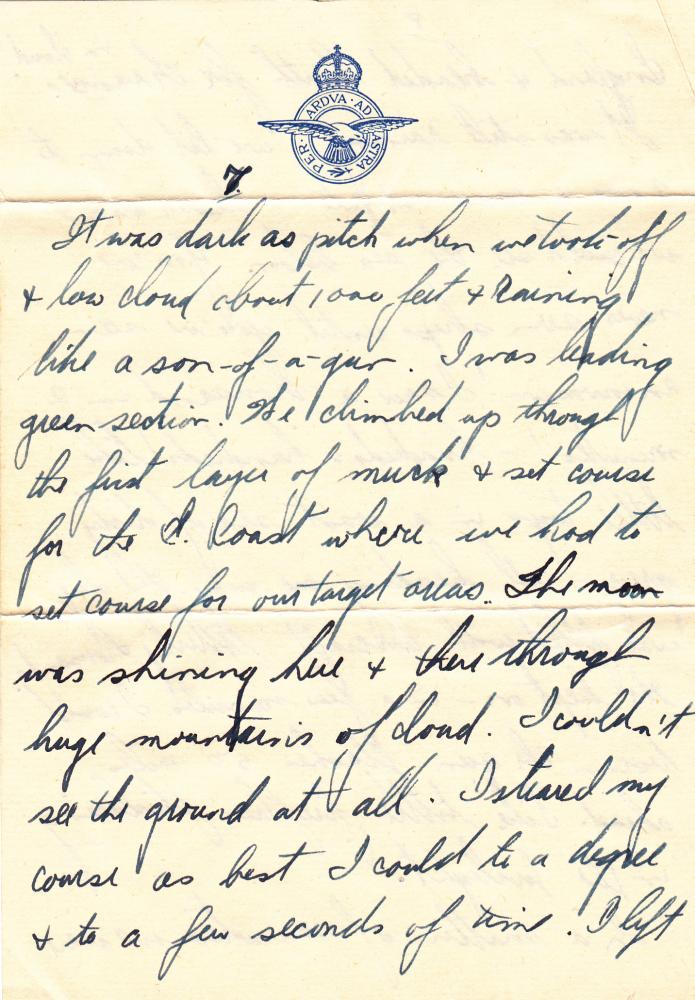 PER · ARDVA · AD ASTRA
7.
It was dark as pitch when we took-off
& low cloud about 1000 feet & raining
like a son-of-a-gun. I was leading
green section. We climbed up through
the first layer of muck & set course
for the Coast where we had to
set course for our target areas. The moon
was shining here & there through
huge mountains of cloud. I couldn't
see the ground at all. I steared my
course as best I could to a degree
& to a few seconds of time. I left